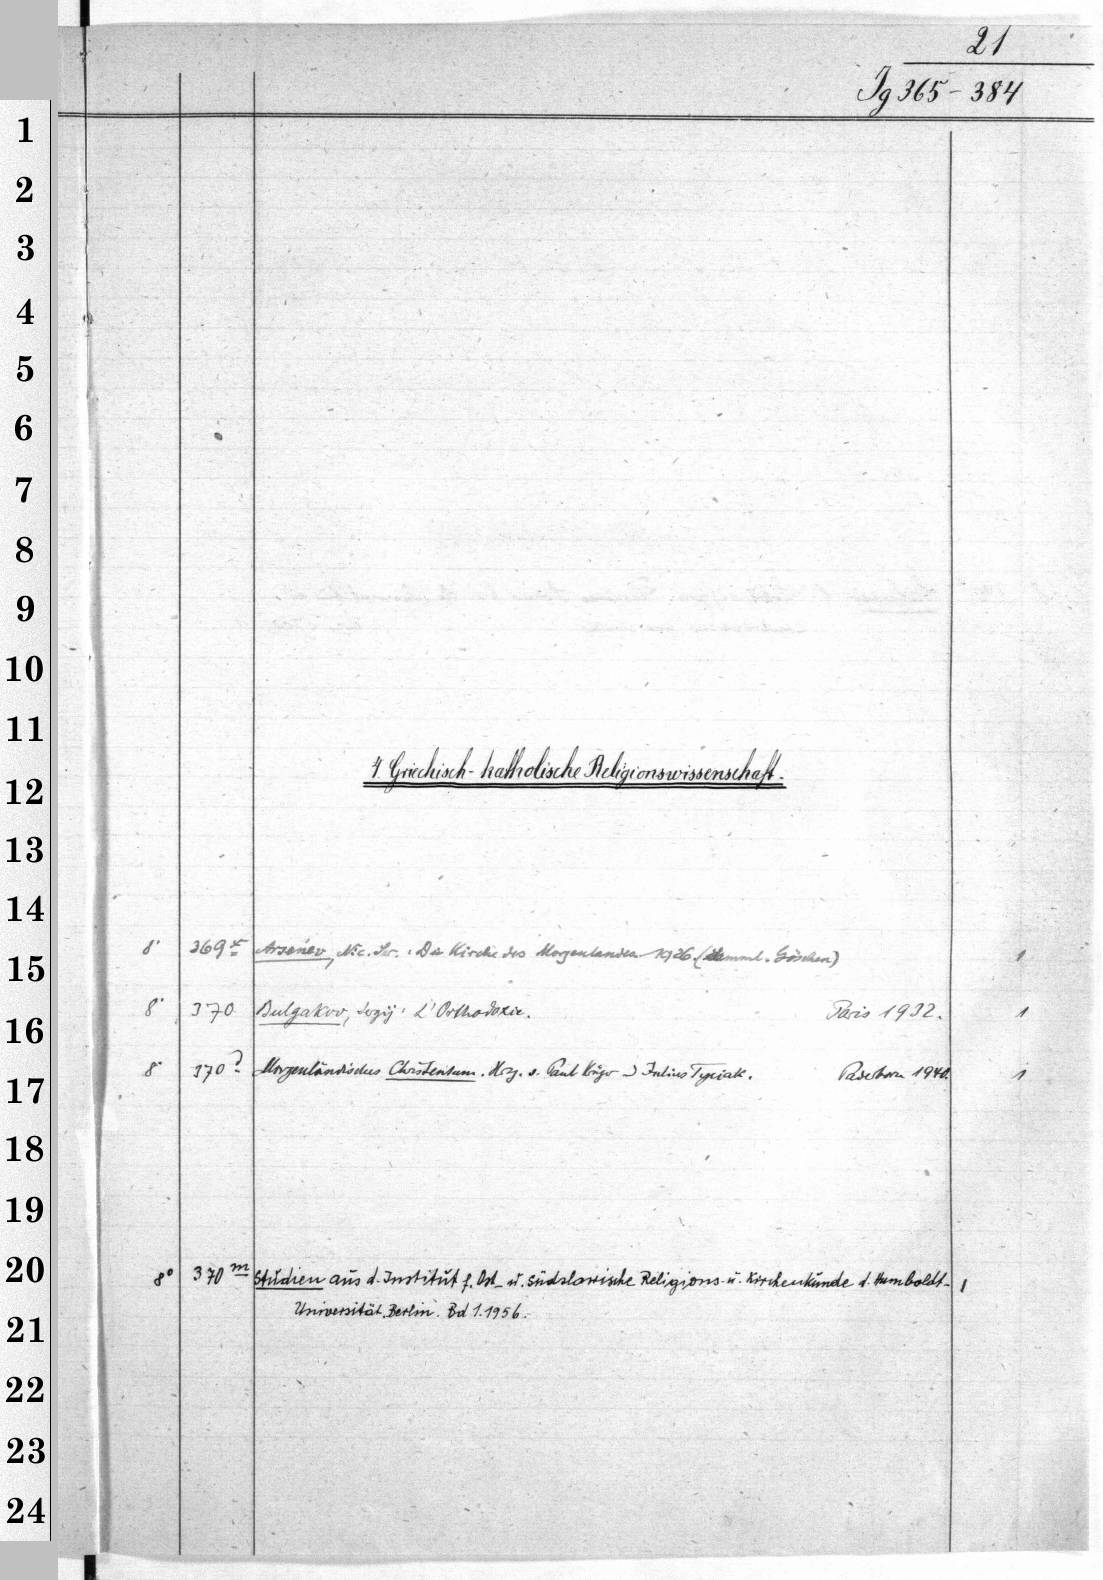 21
Jg 365 - 384
4. Griechisch-katholische Religionswissenschaft.
8° 369 Arseńev, Nic. Ser.: Die Kirche des Morgenlandes 1926. (Samml. Göschen) 1
8° 370 Bulgakov, Sergij: L'Orthodoxie. Paris 1932. 1
8° 370 Morgenländisches Christentum. Hrsg. v. Paul Krüger u. Julius Tyciak. Paderborn 1940. 1
8° 370 m Studien aus d. Institut f. Ost- u. südslawische Religions- u. Kirchenkunde d. Humboldt- 1
Universität Berlin. Bd 1. 1956.
1
2
3
4
5
6
7
8
9
10
11
12
13
14
15
16
17
18
19
20
21
22
23
24